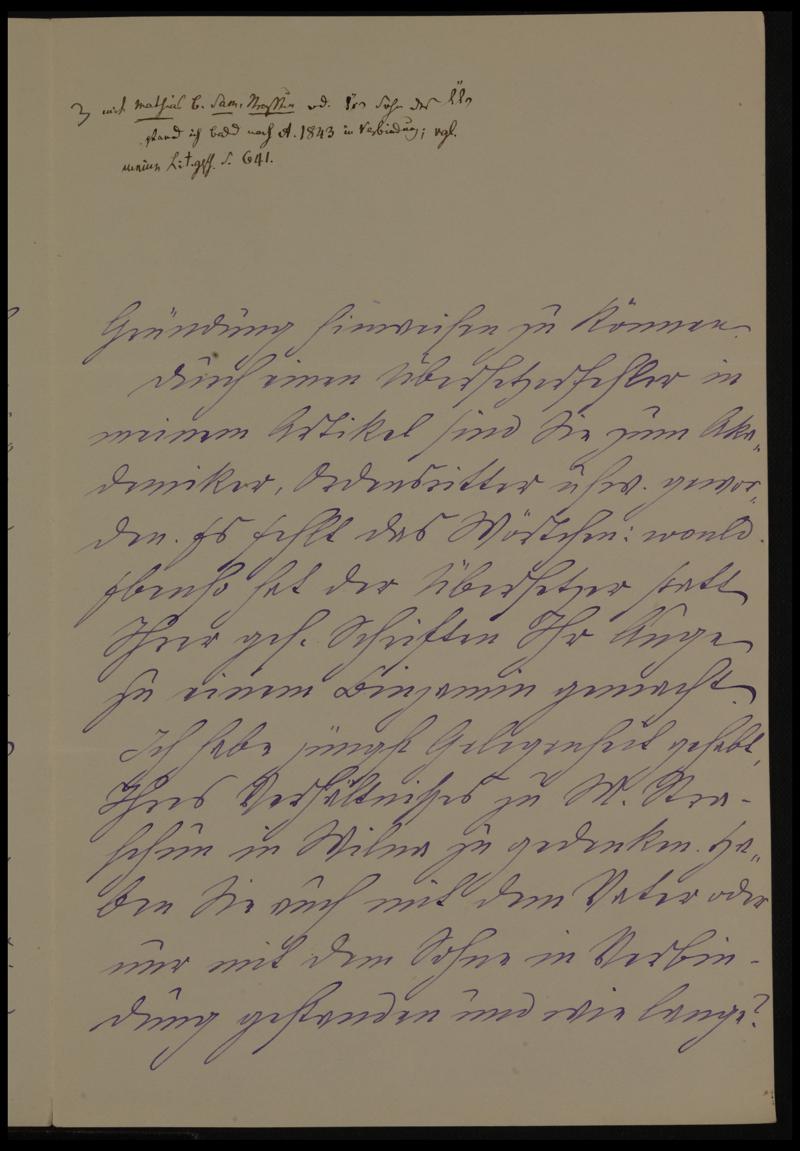 mit Mathias b. Sam. Straschun od. dem Sohn des
stand ich bald nach A. 1843 in Verbindung; vgl.
meine Lit.gesch. S. 641.
Gründung hinweisen zu können.
Durch einen Übersetzerfehler in
meinem Artikel sind Sie zum Aka„
demiker, Ordensritter usw. gewor„
den. Es fehlt das Wörtchen: would.
Ebenso hat der Übersetzer statt
Ihrer ges. Schriften Ihr Auge
zu einem Binjamin gemacht.
Ich habe jüngst Gelegenheit gehabt,
Ihres Verhältnisses zu M. Stra-
schun in Wilna zu gedenken. Ha„
ben Sie auch mit dem Vater oder
nur mit dem Sohne in Verbin-
dung gestanden und wie lange?